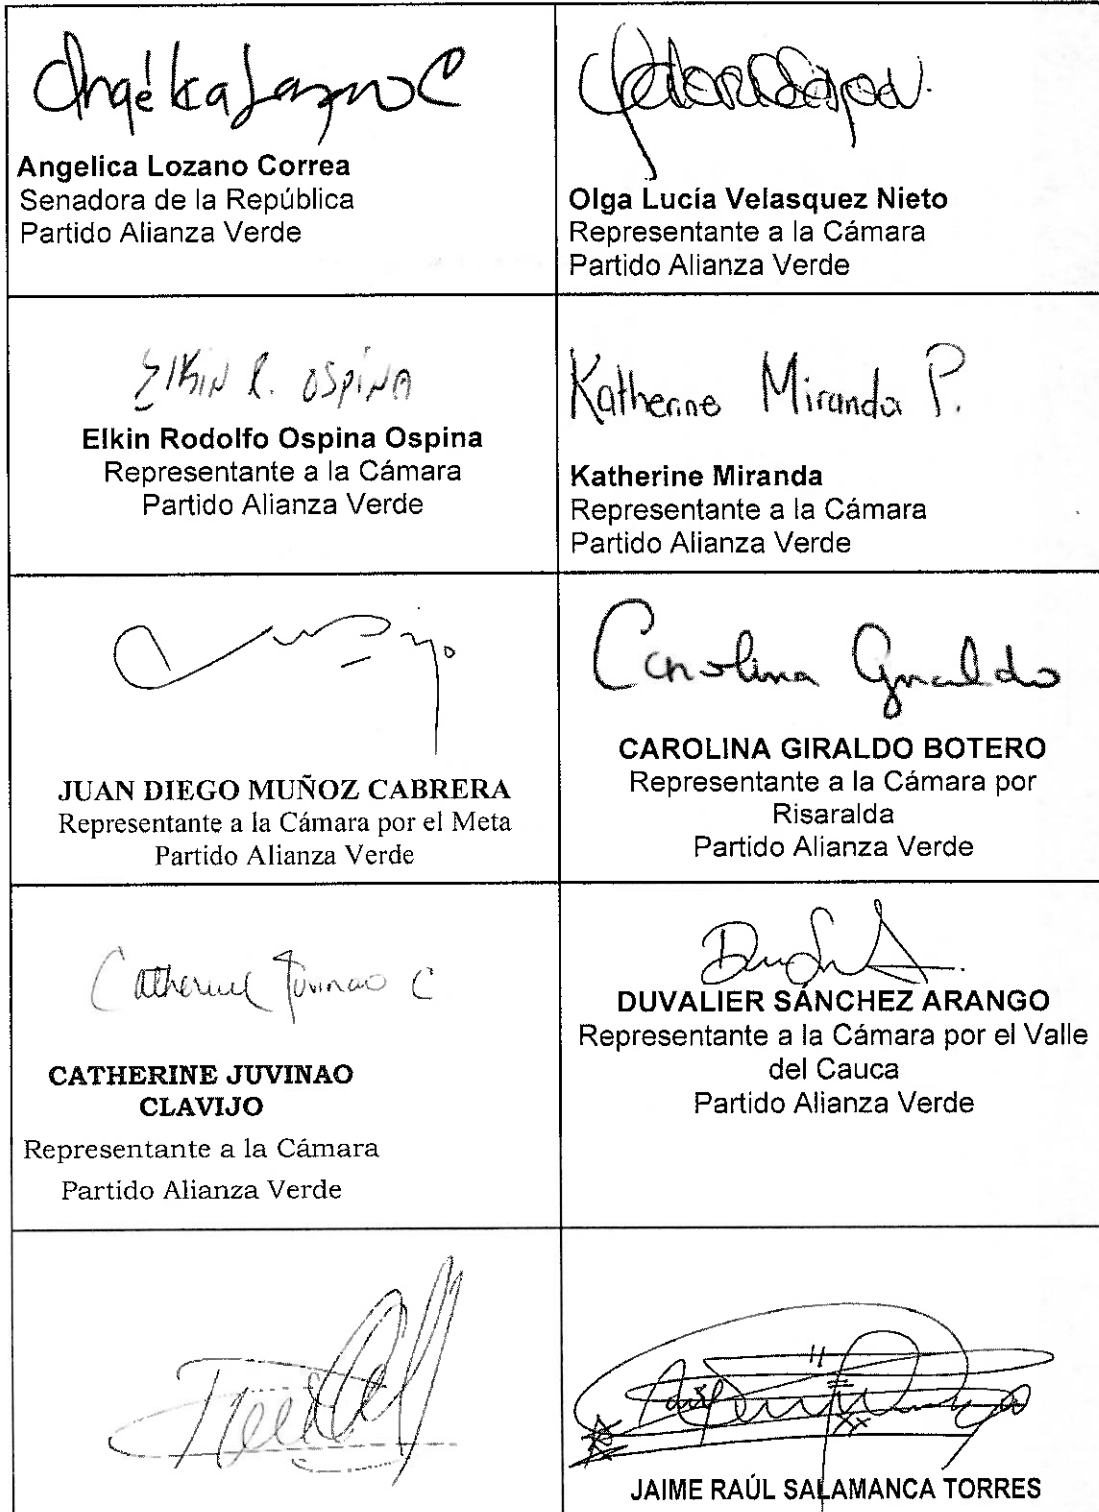 Angélica Lozano C
Angelica Lozano Correa
Senadora de la República
Partido Alianza Verde
Olga Lucía Velasquez Nieto
Representante a la Cámara
Partido Alianza Verde
Elkin R. Ospina
Elkin Rodolfo Ospina Ospina
Representante a la Cámara
Partido Alianza Verde
Katherine Miranda P.
Katherine Miranda
Representante a la Cámara
Partido Alianza Verde
JUAN DIEGO MUÑOZ CABRERA
Representante a la Cámara por el Meta
Partido Alianza Verde
Carolina Giraldo
CAROLINA GIRALDO BOTERO
Representante a la Cámara por
Risaralda
Partido Alianza Verde
Catherine Juvinao C
CATHERINE JUVINAO
CLAVIJO
Representante a la Cámara
Partido Alianza Verde
DUVALIER SÁNCHEZ ARANGO
Representante a la Cámara por el Valle
del Cauca
Partido Alianza Verde
JAIME RAÚL SALAMANCA TORRES